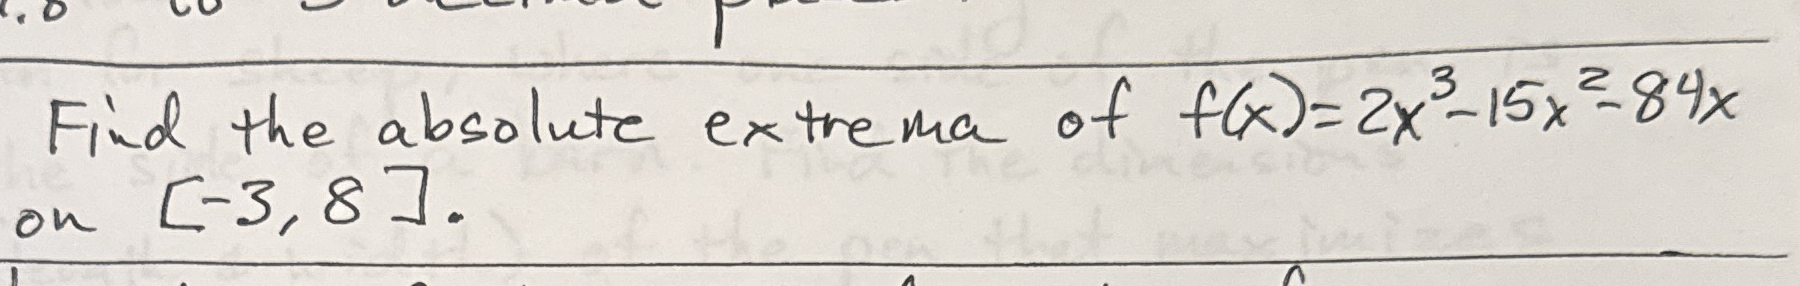 Find the absolute extrema of f(x)=2x³-15x²-84x
on [-3, 8].